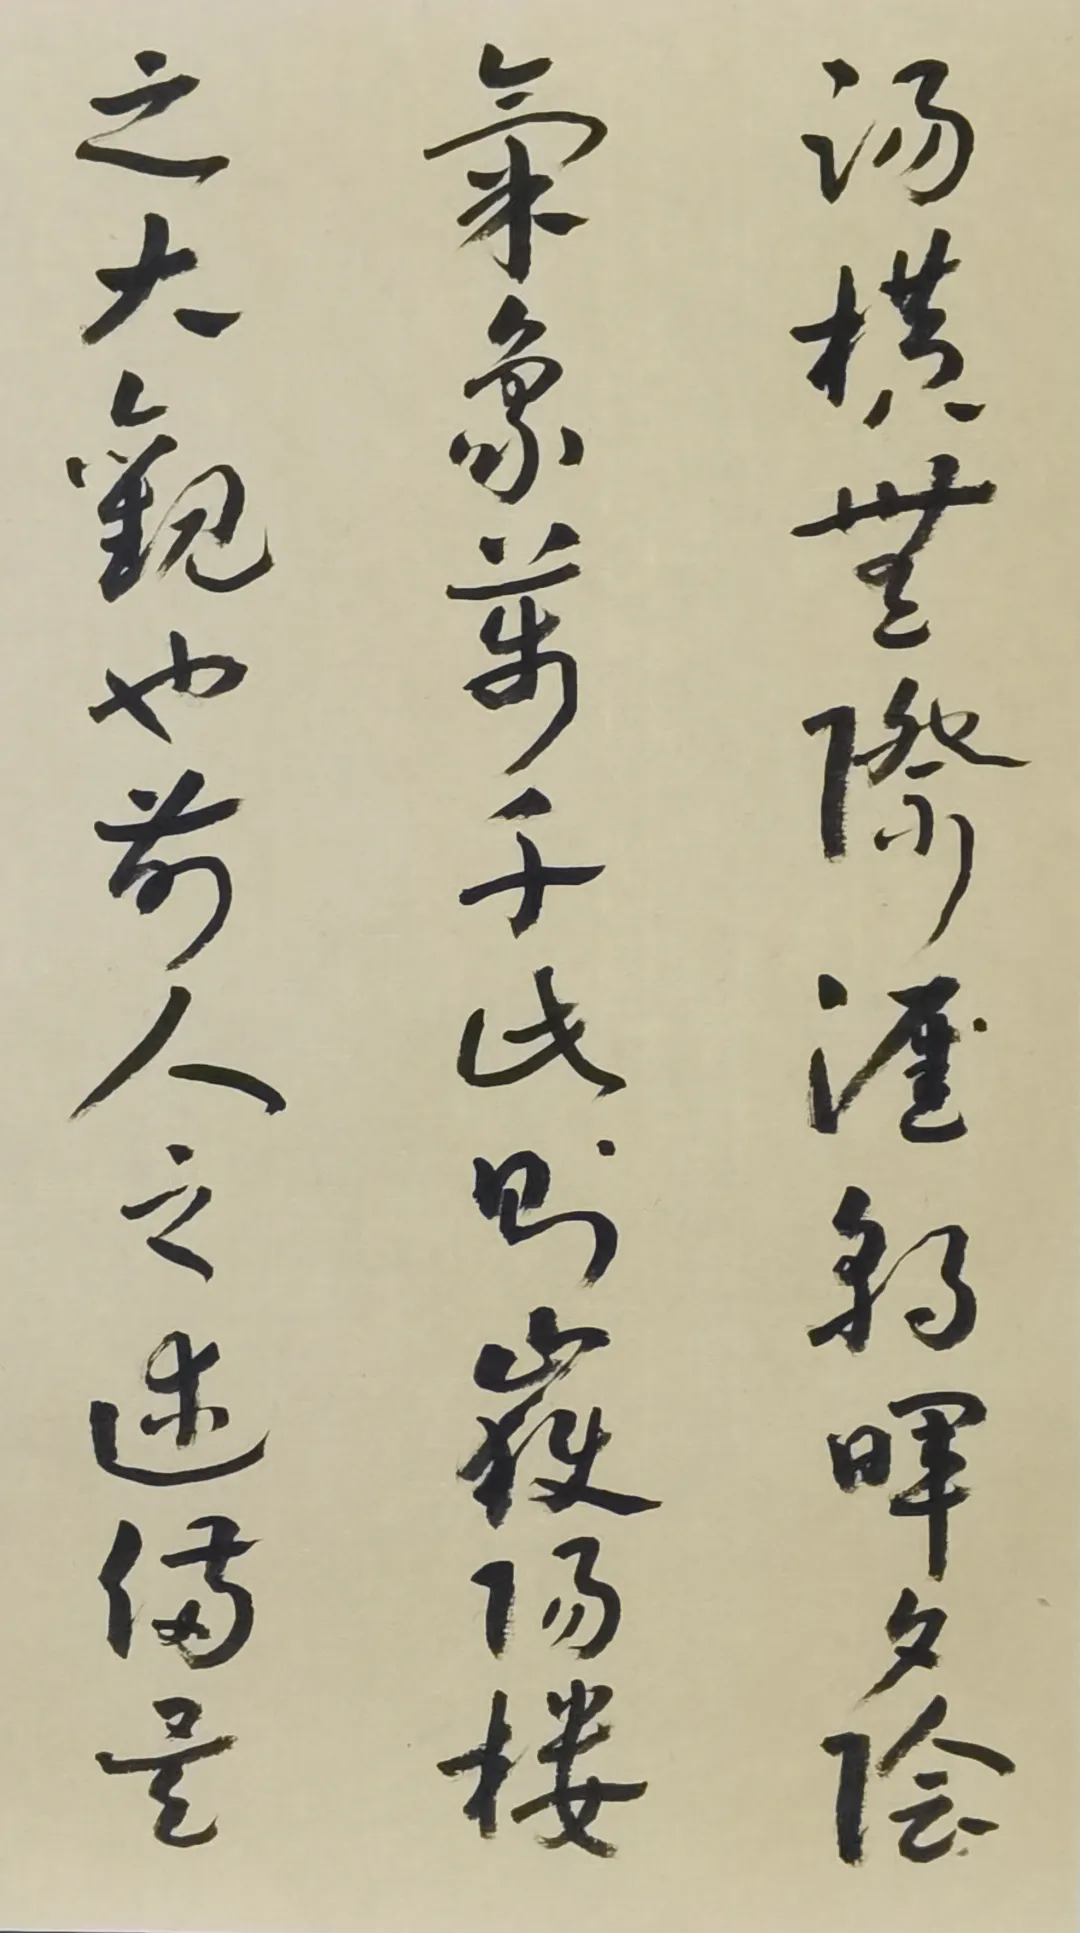 湯橫無際涯朝暉夕陰
氣象萬千此則嶽陽樓
之大觀也前人之述備矣